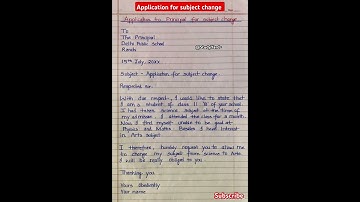 Application for subject change
Application to Principal for subject change.
To
The Principal
Delhi Public School
Ranchi
15th July, 20xx
Subject - Application for subject change.
Respected sir,
With due respect, I would like to state that
I am a student of class 11 'B' of your school.
I had taken science subject at the time of
my admission. I attended the class for a month.
Now, I find myself unable to be good at
Physics and Maths. Besides I have interest
in Arts subject.
I therefore, humbly request you to allow me
to change my subject from science to Arts.
I will be really obliged to you
Thanking you
Yours obediently
Your name
Subscribe